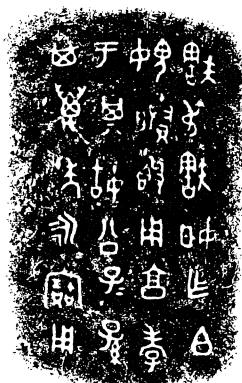 㝬叔㝬姬乍白
媿媵簋用享孝
于其姑公子＝孫
其萬年永寶用